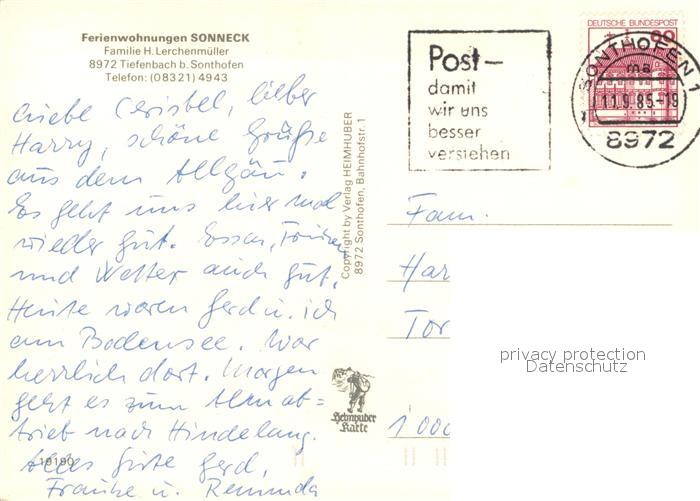 Ferienwohnungen SONNECK
Familie H. Lerchenmüller
8972 Tiefenbach b. Sonthofen
Telefon: (0 83 21) 49 43
Liebe Christel, lieber
Harry, schöne Grüße
aus dem Allgäu.
Es geht uns hier mal
wieder gut. Essen, Trinken
und Wetter auch gut.
Heute waren Gerd u. ich
am Bodensee. War
herrlich dort. Morgen
geht es zum Almab=
trieb nach Hindelang.
Alles Gute Gerd,
Frauke u.
19190
Copyright by Verlag HEIMHUBER
8972 Sonthofen, Bahnhofstr. 1
Heimhuber
Karte
Post —
damit
wir uns
besser
verstehen
DEUTSCHE BUNDESPOST
SONTHOFEN 1
ma
11.9.85-19
8972
Fam.
Har
Tor
1000
privacy protection
Datenschutz